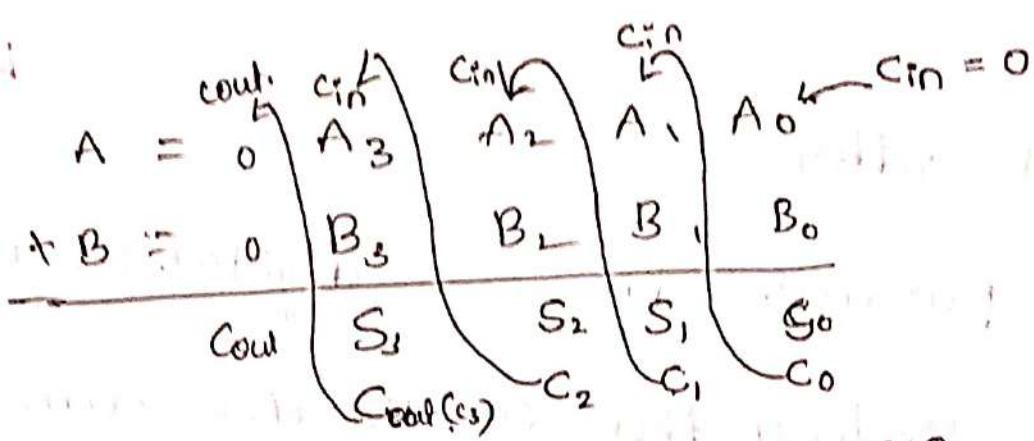 cout. Cin Cin Cin Cin = 0
A = 0 A3 A2 A1 A0
+ B = 0 B3 B2 B1 B0
Cout S3 S2 S1 S0
Cout (C3) C2 C1 C0